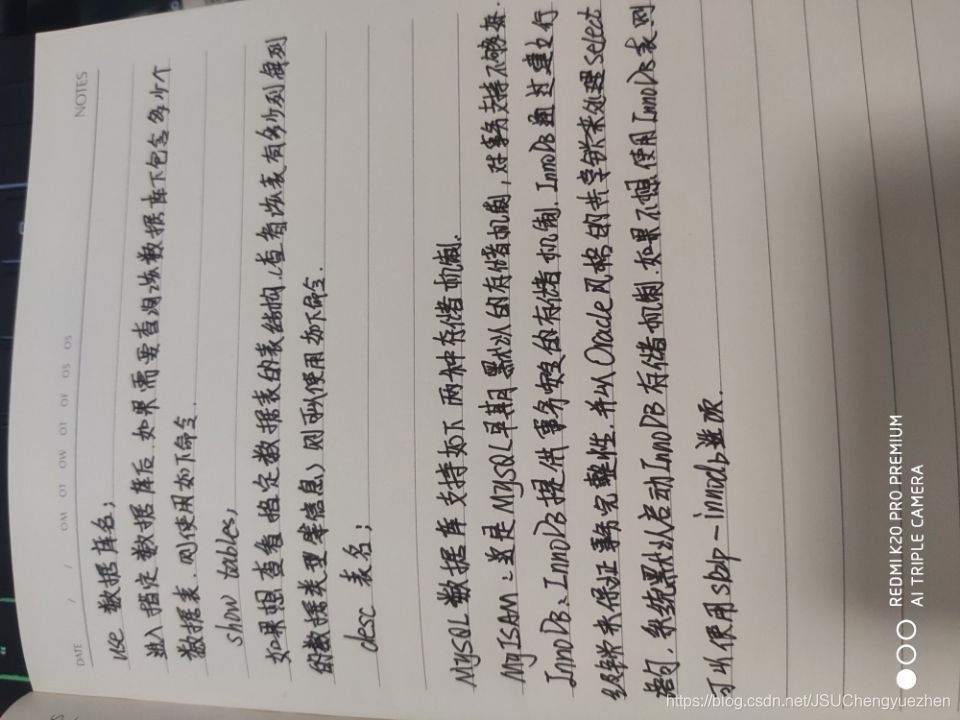 NOTES
DATE / / OM OT OW OT OF OS OS
use 数据库名;
进入指定数据库后,如果需要查询该数据库下包含多少个
数据表,则使用如下命令.
show tables;
如果想查看指定数据表的表结构(查看该表有多少列每列
的数据类型等信息)则可以使用如下命令.
desc 表名;
MySQL数据库支持如下两种存储机制.
MyISAM:这是MySQL早期默认的存储机制,对事务支持不够好.
InnoDB:InnoDB提供事务安全的存储机制.InnoDB通过建立行
级锁来保证事务完整性,并以Oracle风格的共享锁来处理select
语句,系统默认启动InnoDB存储机制.如果不想使用InnoDB表则
可以使用skip-innodb选项.
REDMI K20 PRO PREMIUM
AI TRIPLE CAMERA
https://blog.csdn.net/JSUChengyuezhen